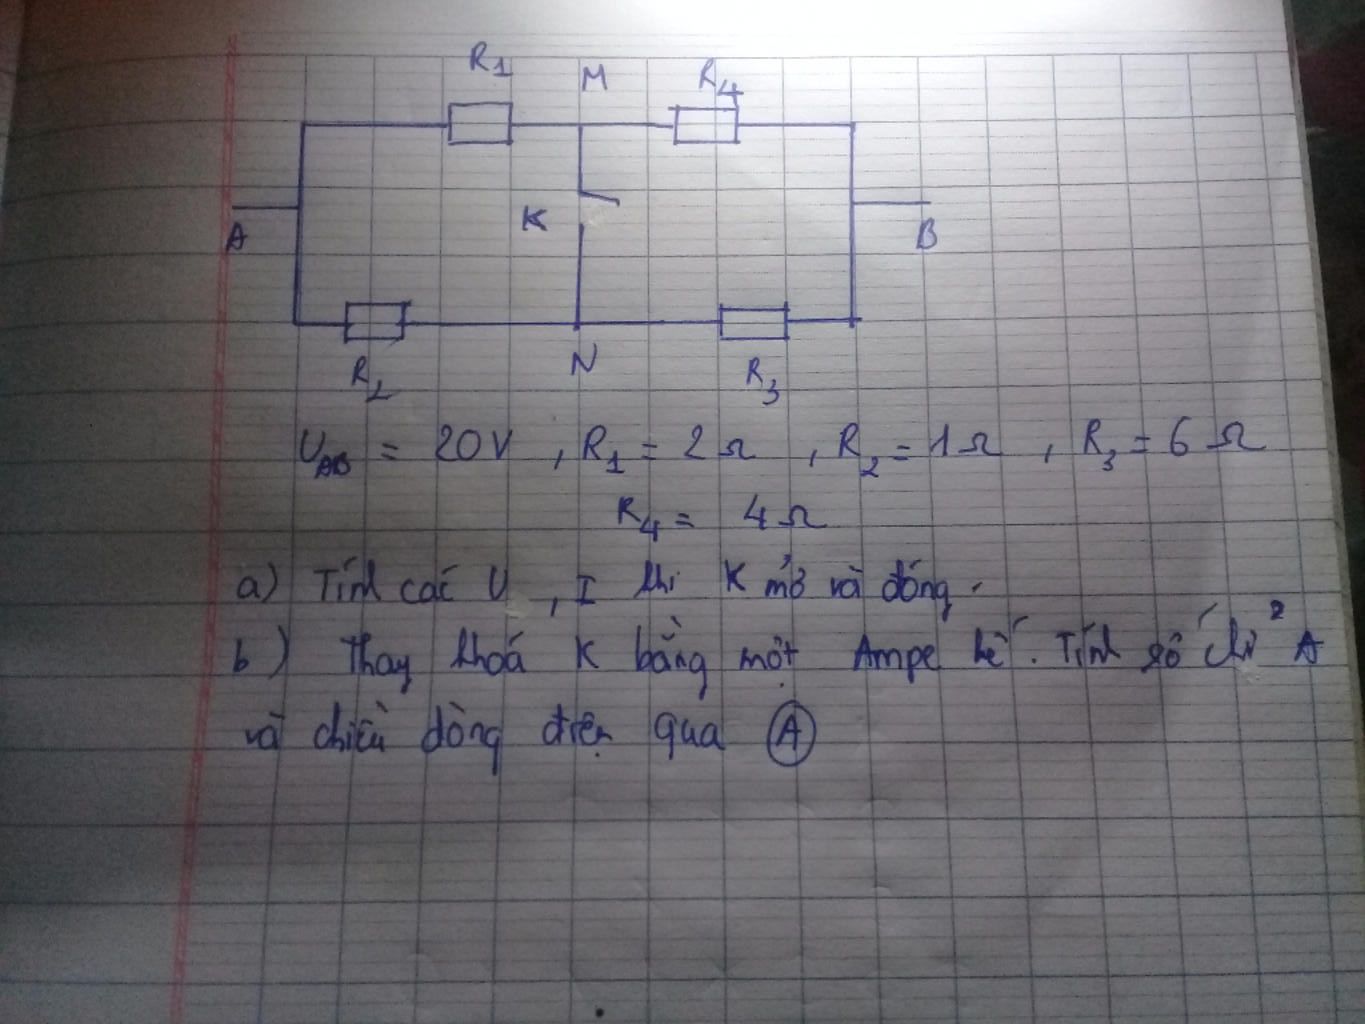 R1 M R4
A K B
R2 N R3
UAB = 20V , R1 = 2Ω , R2 = 1Ω , R3 = 6Ω
R4 = 4Ω
a) Tính các U , I khi K mở và đóng.
b) Thay khoá K bằng một Ampe kế. Tính số chỉ A
và chiều dòng điện qua A